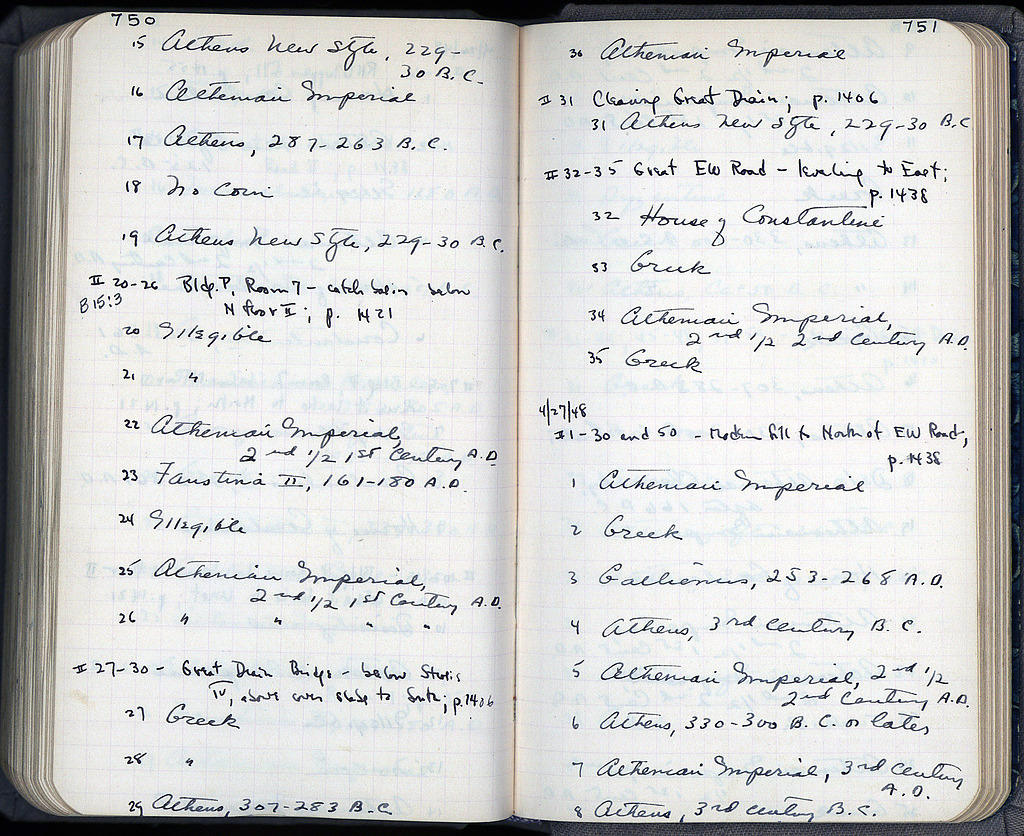 750
15 Athens New Style, 229-
30 B.C.
16 Athenian Imperial
17 Athens, 287-263 B.C.
18 No Coin
19 Athens New Style, 229-30 B.C.
II 20-26 Bldg. P, Room 7 - catch basin below
B 15:3 N floor II; p. 1421
20 Illegible
21 "
22 Athenian Imperial,
2nd 1/2 1st Century A.D.
23 Faustina II, 161-180 A.D.
24 Illegible
25 Athenian Imperial,
2nd 1/2 1st Century A.D.
26 " " " "
II 27-30 - Great Drain Bridge - below
IV, above cover to South; p. 1406
27 Greek
28 "
29 Athens, 307-283 B.C.
751
30 Athenian Imperial
II 31 Cleaning Great Drain; p. 1406
31 Athens New Style, 229-30 B.C.
II 32-35 Great EW Road - leveling to East;
p. 1438
32 House of Constantine
33 Greek
34 Athenian Imperial,
2nd 1/2 2nd Century A.D.
35 Greek
4/27/48
II 1-30 and 50 - Modern fill to North of EW Road,
p. 1438
1 Athenian Imperial
2 Greek
3 Gallienus, 253-268 A.D.
4 Athens, 3rd Century B.C.
5 Athenian Imperial, 2nd 1/2
2nd Century A.D.
6 Athens, 330-300 B.C. or later
7 Athenian Imperial, 3rd Century
A.D.
8 Athens, 3rd Century B.C.